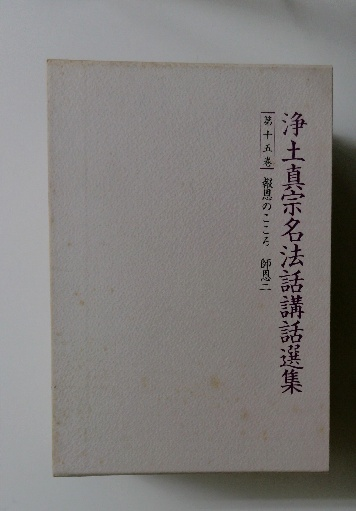 浄土真宗名法話講話選集
第十五巻 報恩のこころ 師恩二